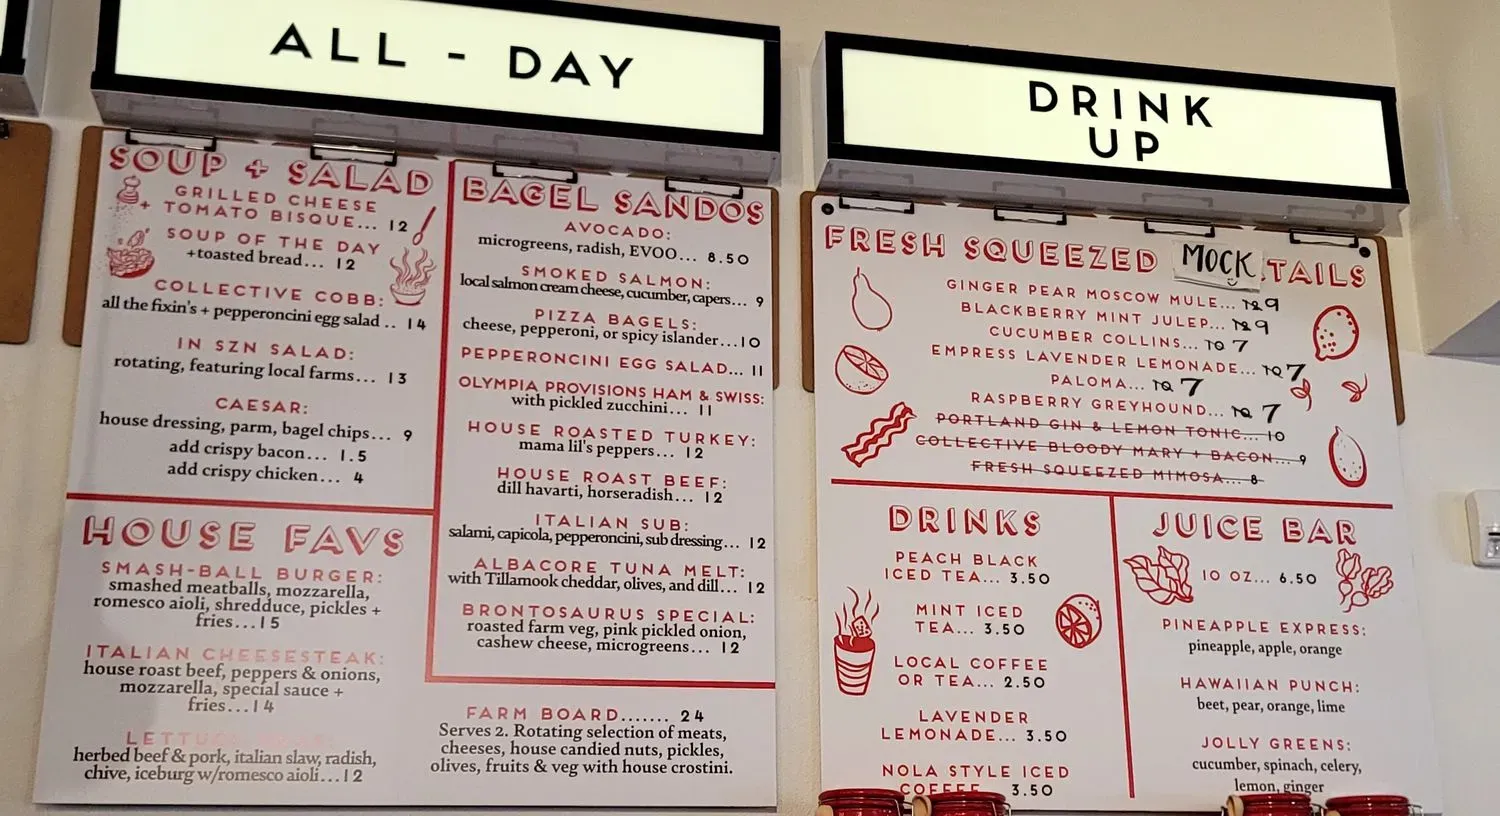 ALL - DAY
SOUP + SALAD
GRILLED CHEESE
+ TOMATO BISQUE... 12
SOUP OF THE DAY
+toasted bread... 12
COLLECTIVE COBB:
all the fixin's + pepperoncini egg salad .. 14
IN SZN SALAD:
rotating, featuring local farms... 13
CAESAR:
house dressing, parm, bagel chips... 9
add crispy bacon... 1.5
add crispy chicken... 4
HOUSE FAVS
SMASH-BALL BURGER:
smashed meatballs, mozzarella,
romesco aioli, shredduce, pickles +
fries...15
ITALIAN CHEESESTEAK:
house roast beef, peppers & onions,
mozzarella, special sauce +
fries...14
herbed beef & pork, italian slaw, radish,
chive, iceburg w/romesco aioli...12
BAGEL SANDOS
AVOCADO:
microgreens, radish, EVOO... 8.50
SMOKED SALMON:
local salmon cream cheese, cucumber, capers... 9
PIZZA BAGELS:
cheese, pepperoni, or spicy islander...10
PEPPERONCINI EGG SALAD... 11
OLYMPIA PROVISIONS HAM & SWISS:
with pickled zucchini... 11
HOUSE ROASTED TURKEY:
mama lil's peppers... 12
HOUSE ROAST BEEF:
dill havarti, horseradish... 12
ITALIAN SUB:
salami, capicola, pepperoncini, sub dressing... 12
ALBACORE TUNA MELT:
with Tillamook cheddar, olives, and dill... 12
BRONTOSAURUS SPECIAL:
roasted farm veg, pink pickled onion,
cashew cheese, microgreens... 12
FARM BOARD....... 24
Serves 2. Rotating selection of meats,
cheeses, house candied nuts, pickles,
olives, fruits & veg with house crostini.
DRINK
UP
FRESH SQUEEZED MOCKTAILS
GINGER PEAR MOSCOW MULE... 12 9
BLACKBERRY MINT JULEP... 12 9
CUCUMBER COLLINS... 10 7
EMPRESS LAVENDER LEMONADE... 10 7
PALOMA... 10 7
RASPBERRY GREYHOUND... 10 7
PORTLAND GIN & LEMON TONIC... 10
COLLECTIVE BLOODY MARY + BACON... 9
FRESH SQUEEZED MIMOSA... 8
DRINKS
PEACH BLACK
ICED TEA... 3.50
MINT ICED
TEA... 3.50
LOCAL COFFEE
OR TEA... 2.50
LAVENDER
LEMONADE... 3.50
NOLA STYLE ICED
COFFEE... 3.50
JUICE BAR
10 OZ... 6.50
PINEAPPLE EXPRESS:
pineapple, apple, orange
HAWAIIAN PUNCH:
beet, pear, orange, lime
JOLLY GREENS:
cucumber, spinach, celery,
lemon, ginger